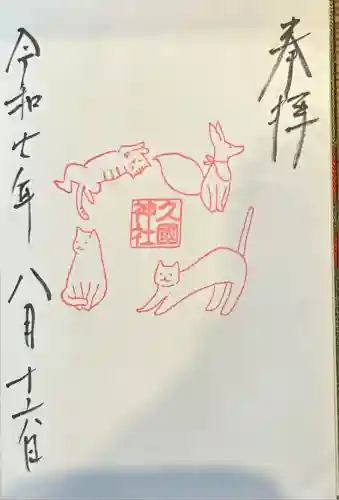 奉拝
久國
神社
令和七年八月十六日